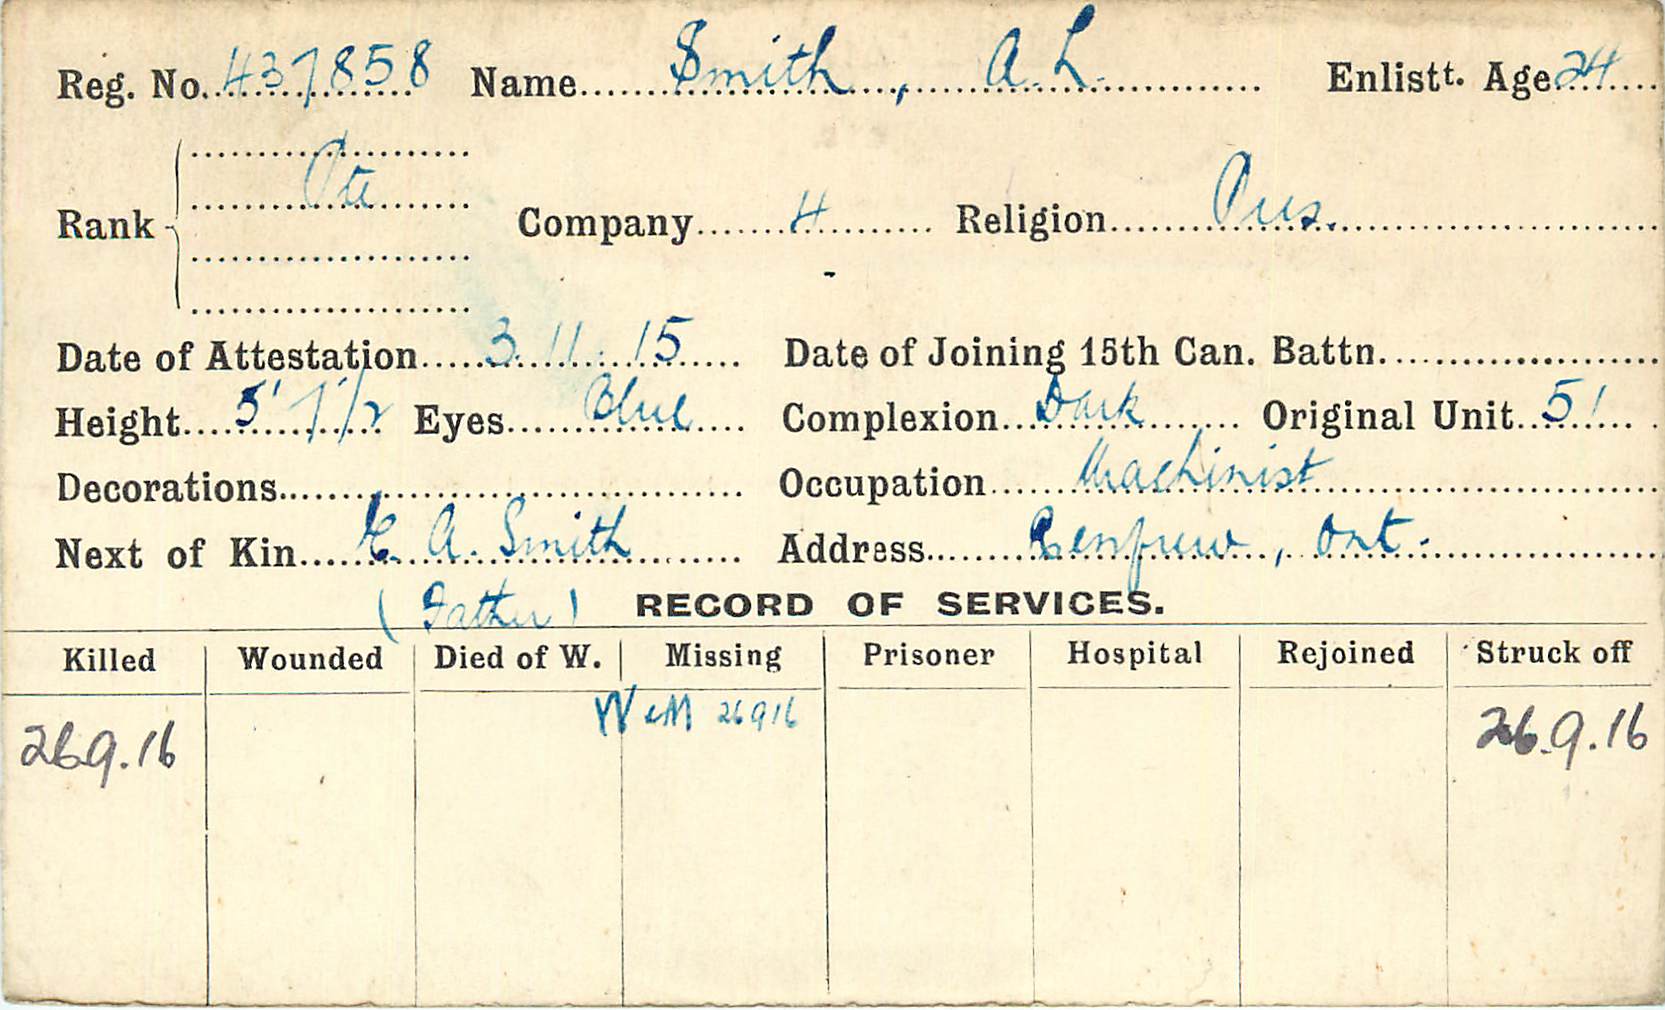 Reg. No. 437858 Name Smith, A. L. Enlistt. Age 24
Rank Pte Company 4 Religion Pres.
Date of Attestation 3. 11. 15 Date of Joining 15th Can. Battn.
Height 5' 7 1/2 Eyes Blue Complexion Dark Original Unit 51
Decorations Occupation Machinist
Next of Kin A. Smith Address Renfrew, Ont.
(Father) RECORD OF SERVICES.
Killed Wounded Died of W. Missing Prisoner Hospital Rejoined Struck off
W & M 26 9 16
26.9.16 26.9.16